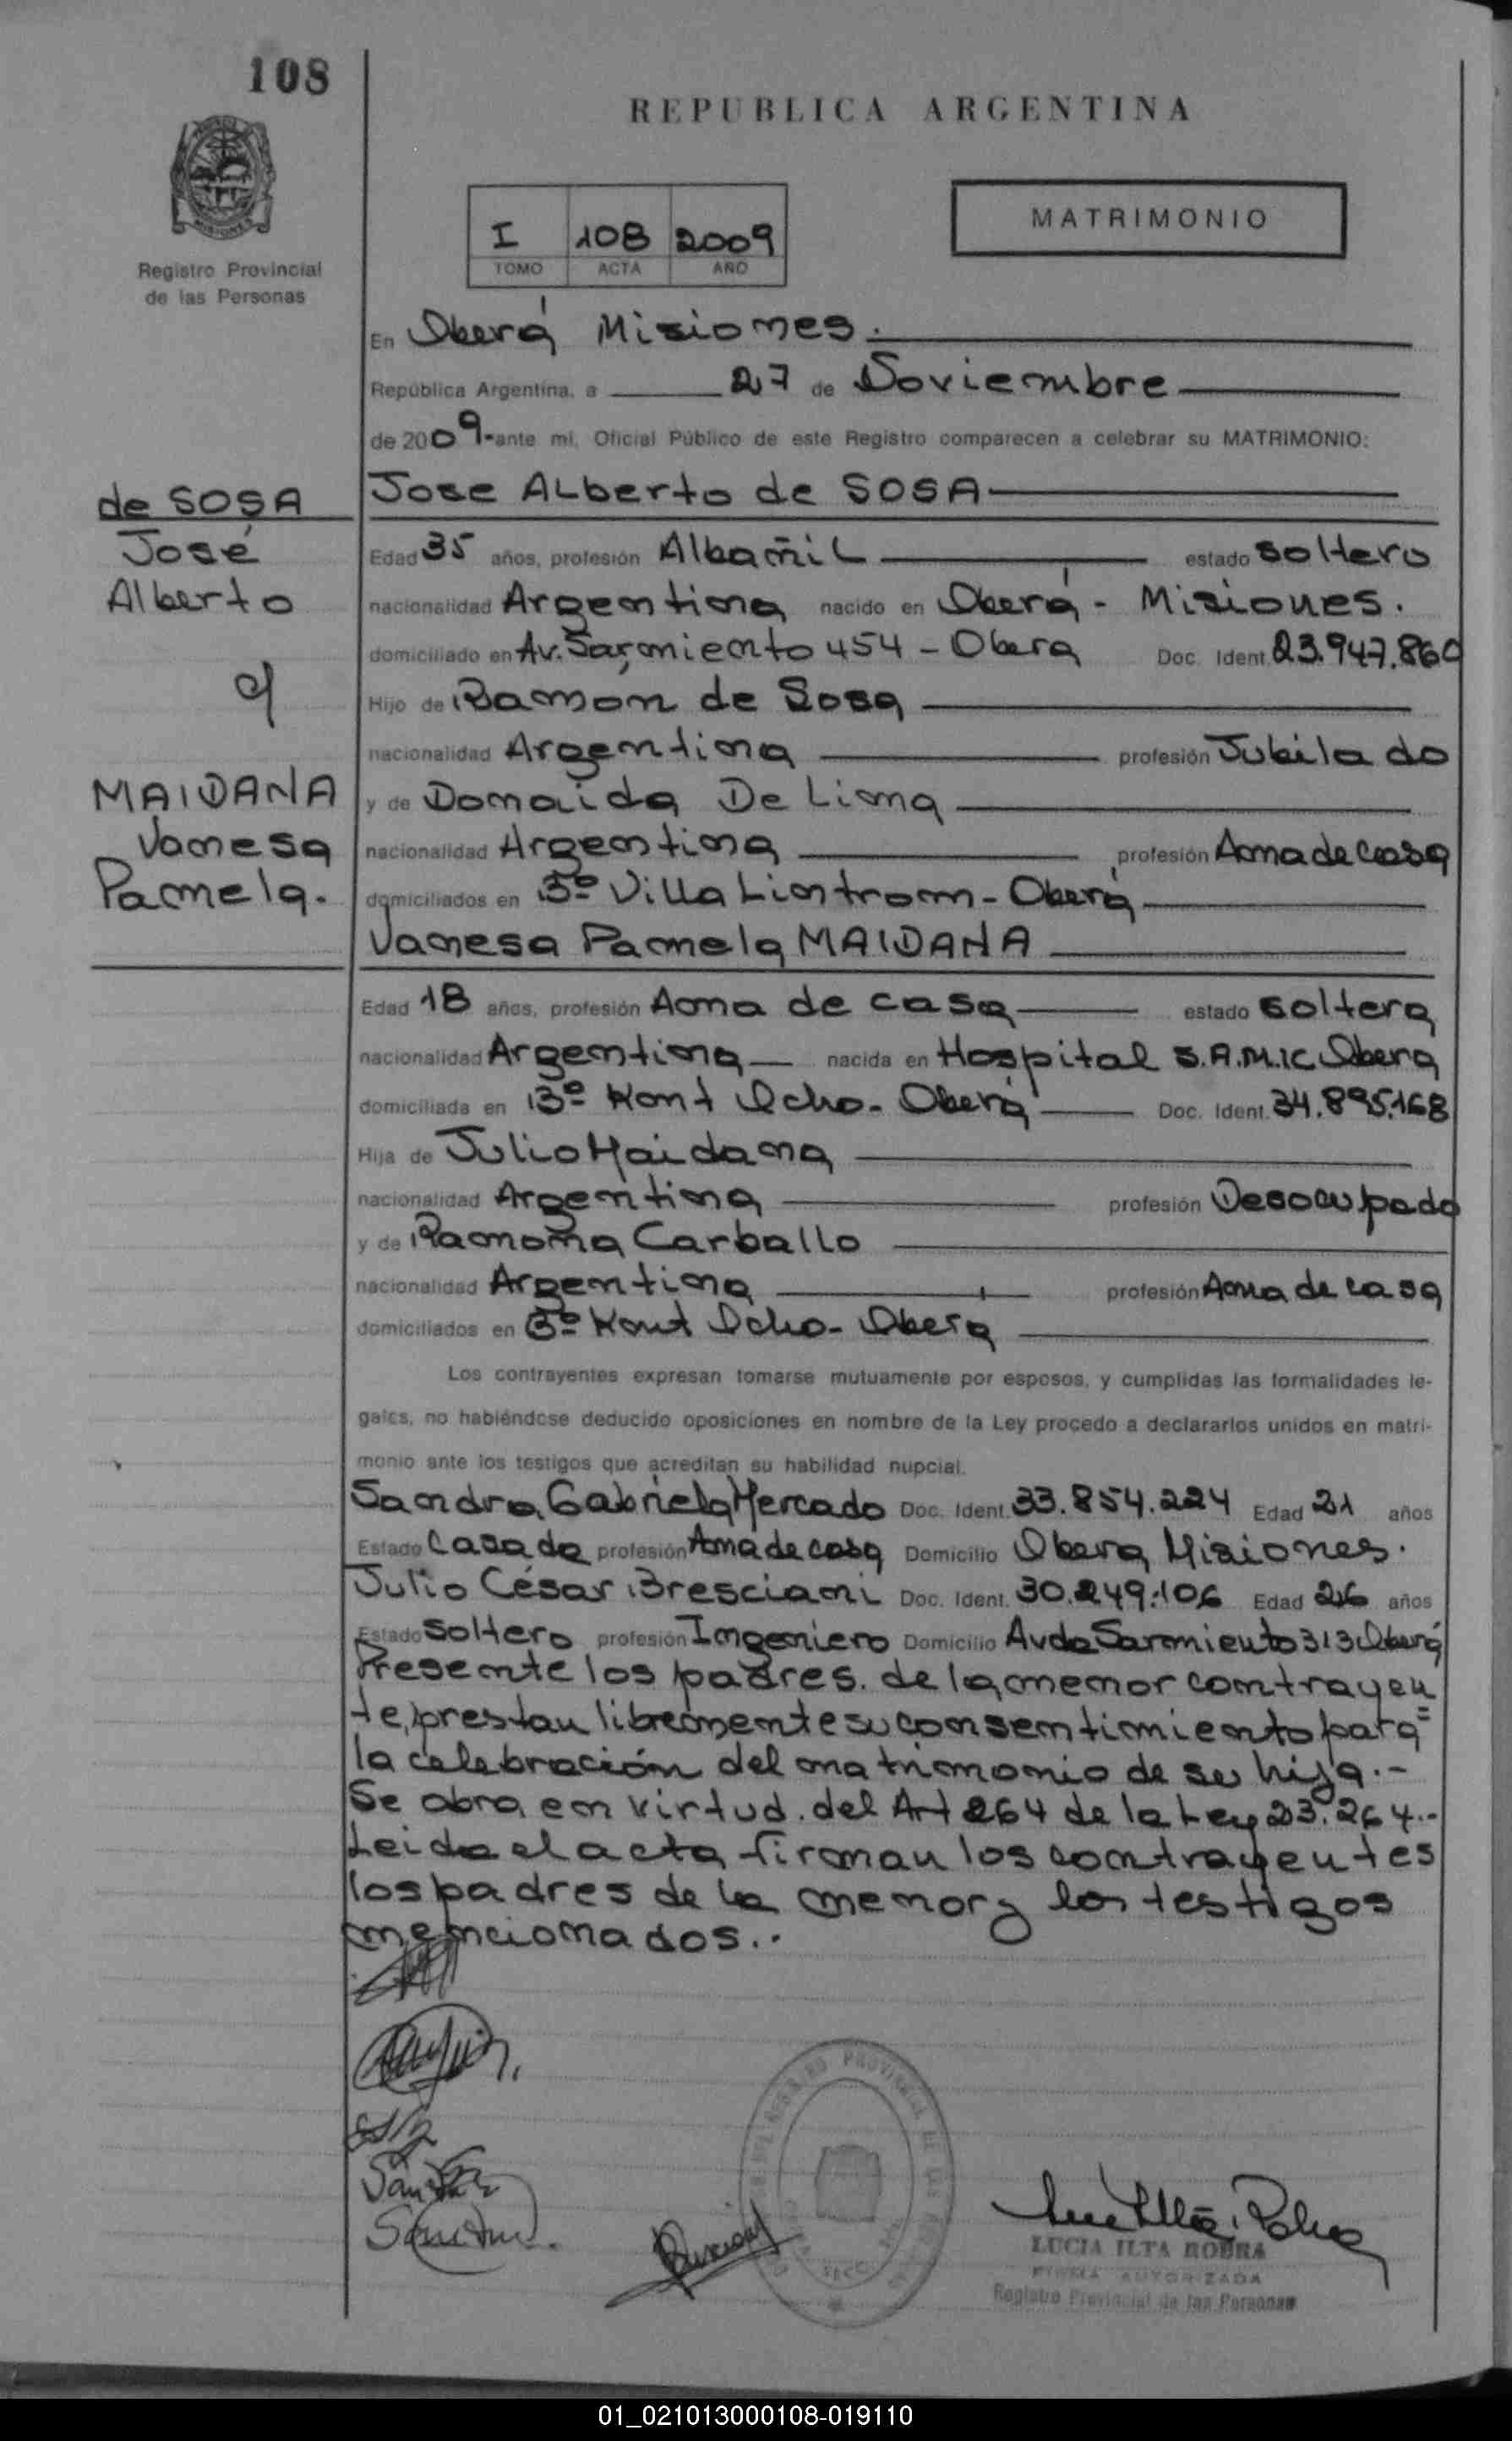 108
REPUBLICA ARGENTINA
MISIONES
Registro Provincial
de las Personas
I 108 2009
TOMO ACTA AÑO
MATRIMONIO
En Oberá Misiones.
República Argentina, a 27 de Noviembre
de 2009.- ante mí, Oficial Público de este Registro comparecen a celebrar su MATRIMONIO:
de SOSA
José
Alberto
c/
MAIDANA
Vanesa
Pamela.
Jose Alberto de SOSA
Edad 35 años, profesión Albañil estado soltero
nacionalidad Argentina nacido en Oberá - Misiones.
domiciliado en Av. Sarmiento 454 - Obera Doc. Ident. 23.947.860
Hijo de Ramón de Sosa
nacionalidad Argentina profesión Jubilado
y de Domaida De Lima
nacionalidad Argentina profesión Ama de casa
domiciliados en Bº Villa Lintrom - Oberá
Vanesa Pamela MAIDANA
Edad 18 años, profesión Ama de casa estado soltera
nacionalidad Argentina nacida en Hospital S.A.M.IC Obera
domiciliada en Bº Kont Ocho - Oberá Doc. Ident. 34.895.168
Hija de Julio Maidana
nacionalidad Argentina profesión Desocupado
y de Ramona Carballo
nacionalidad Argentina profesión Ama de casa
domiciliados en Bº Kont Ocho - Obera
Los contrayentes expresan tomarse mutuamente por esposos, y cumplidas las formalidades le-
gales, no habiéndose deducido oposiciones en nombre de la Ley procedo a declararlos unidos en matri-
monio ante los testigos que acreditan su habilidad nupcial.
Sandra Gabriela Mercado Doc. Ident. 33.854.224 Edad 21 años
Estado Casada profesión Ama de casa Domicilio Obera Misiones.
Julio César Bresciani Doc. Ident. 30.249.106 Edad 26 años
Estado soltero profesión Ingeniero Domicilio Avda Sarmiento 313 Oberá
Presente los padres. de la menor contrayen
te, prestan libremente su consentimiento para
la celebración del matrimonio de su hija.-
Se obra en virtud. del Art 264 de la Ley 23.264.-
Leida el acta firman los contrayentes
los padres de la menor y los testigos
mencionados..
LUCIA ILTA ROBRA
FIRMA AUTORIZADA
Registro Provincial de las Personas
01_021013000108-019110